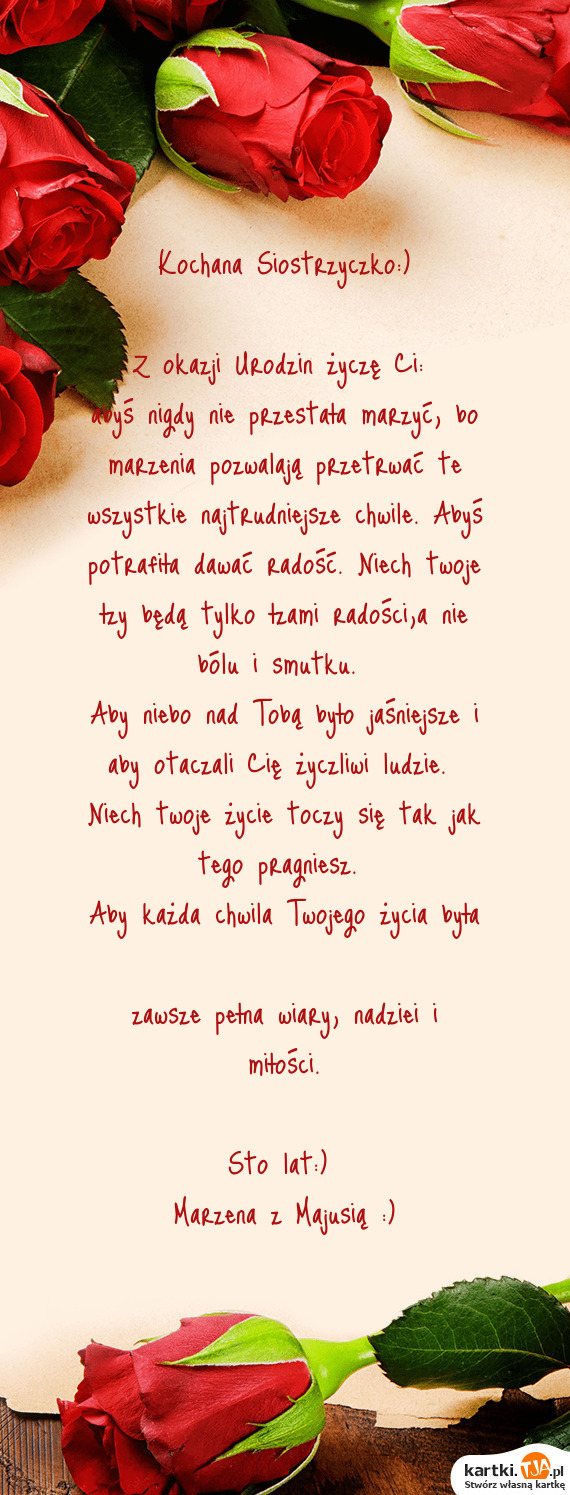 Kochana Siostrzyczko:)
Z okazji Urodzin życzę Ci:
abyś nigdy nie przestała marzyć, bo
marzenia pozwalają przetrwać te
wszystkie najtrudniejsze chwile. Abyś
potrafiła dawać radość. Niech twoje
łzy będą tylko łzami radości,a nie
bólu i smutku.
Aby niebo nad Tobą było jaśniejsze i
aby otaczali Cię życzliwi ludzie.
Niech twoje życie toczy się tak jak
tego pragniesz.
Aby każda chwila Twojego życia była
zawsze pełna wiary, nadziei i
miłości.
Sto lat:)
Marzena z Majusią :)
kartki.TJA.pl
Stwórz własną kartkę